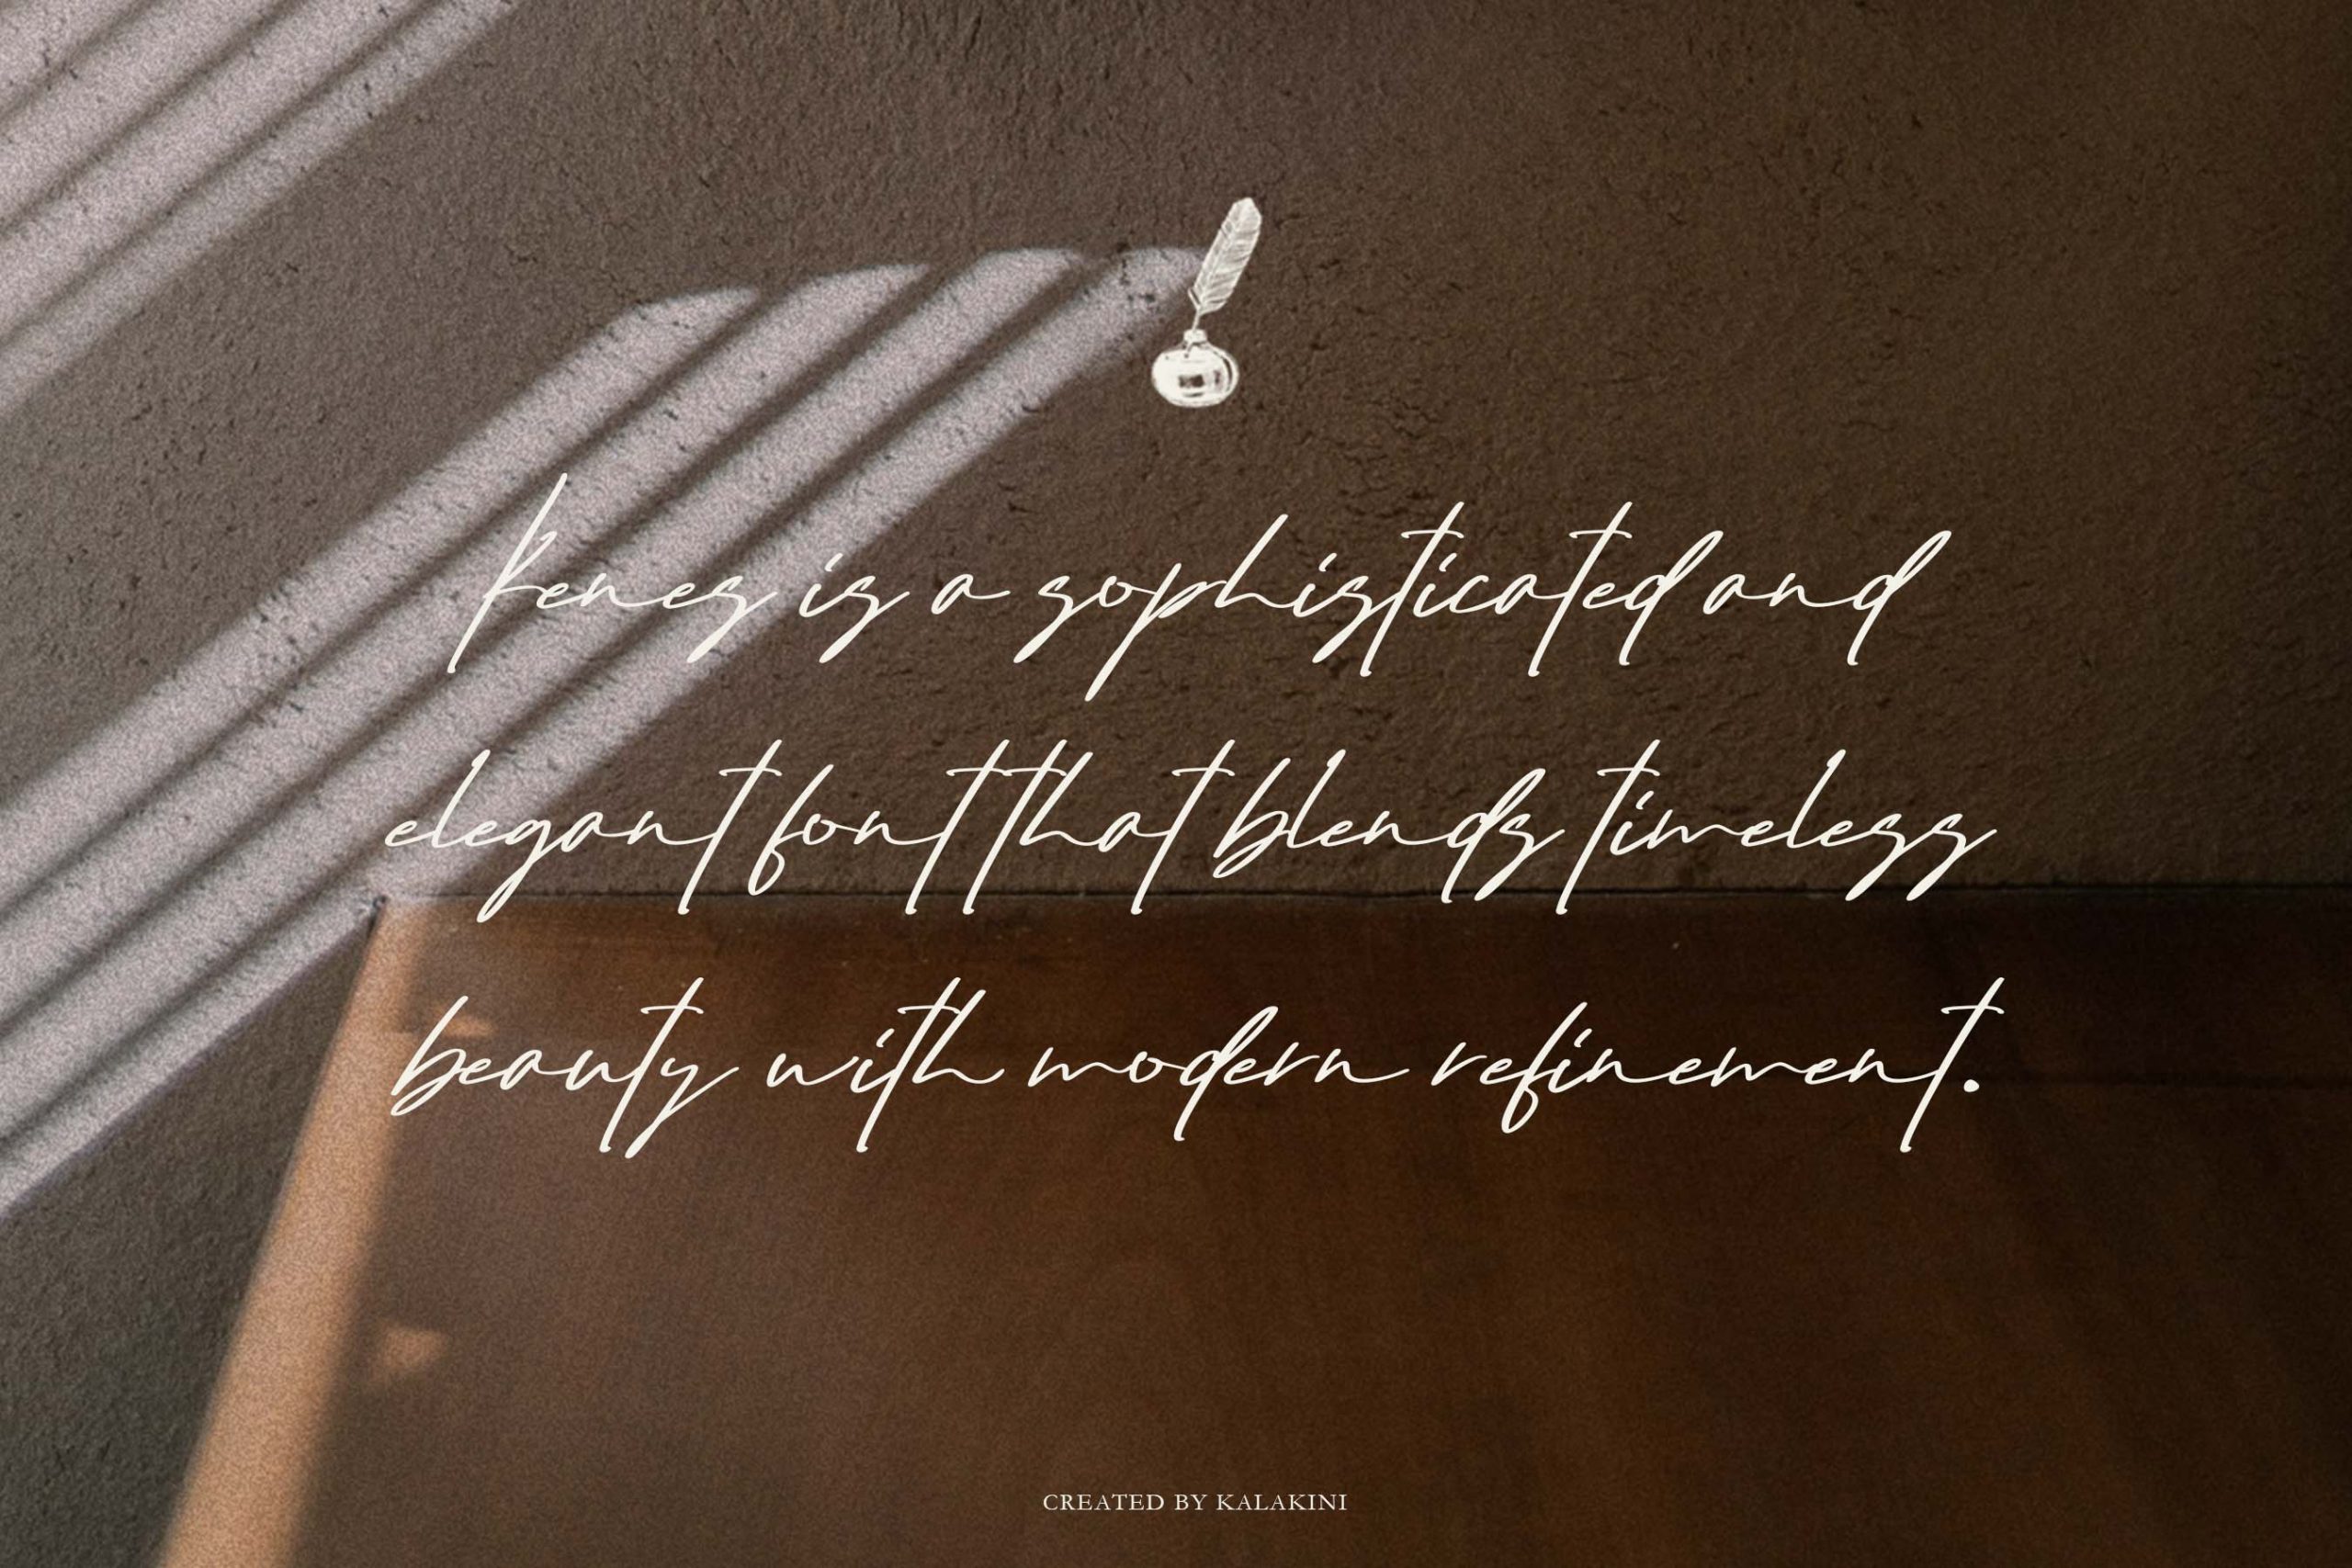 Kenes is a sophisticated and
elegant font that blends timeless
beauty with modern refinement.
CREATED BY KALAKINI